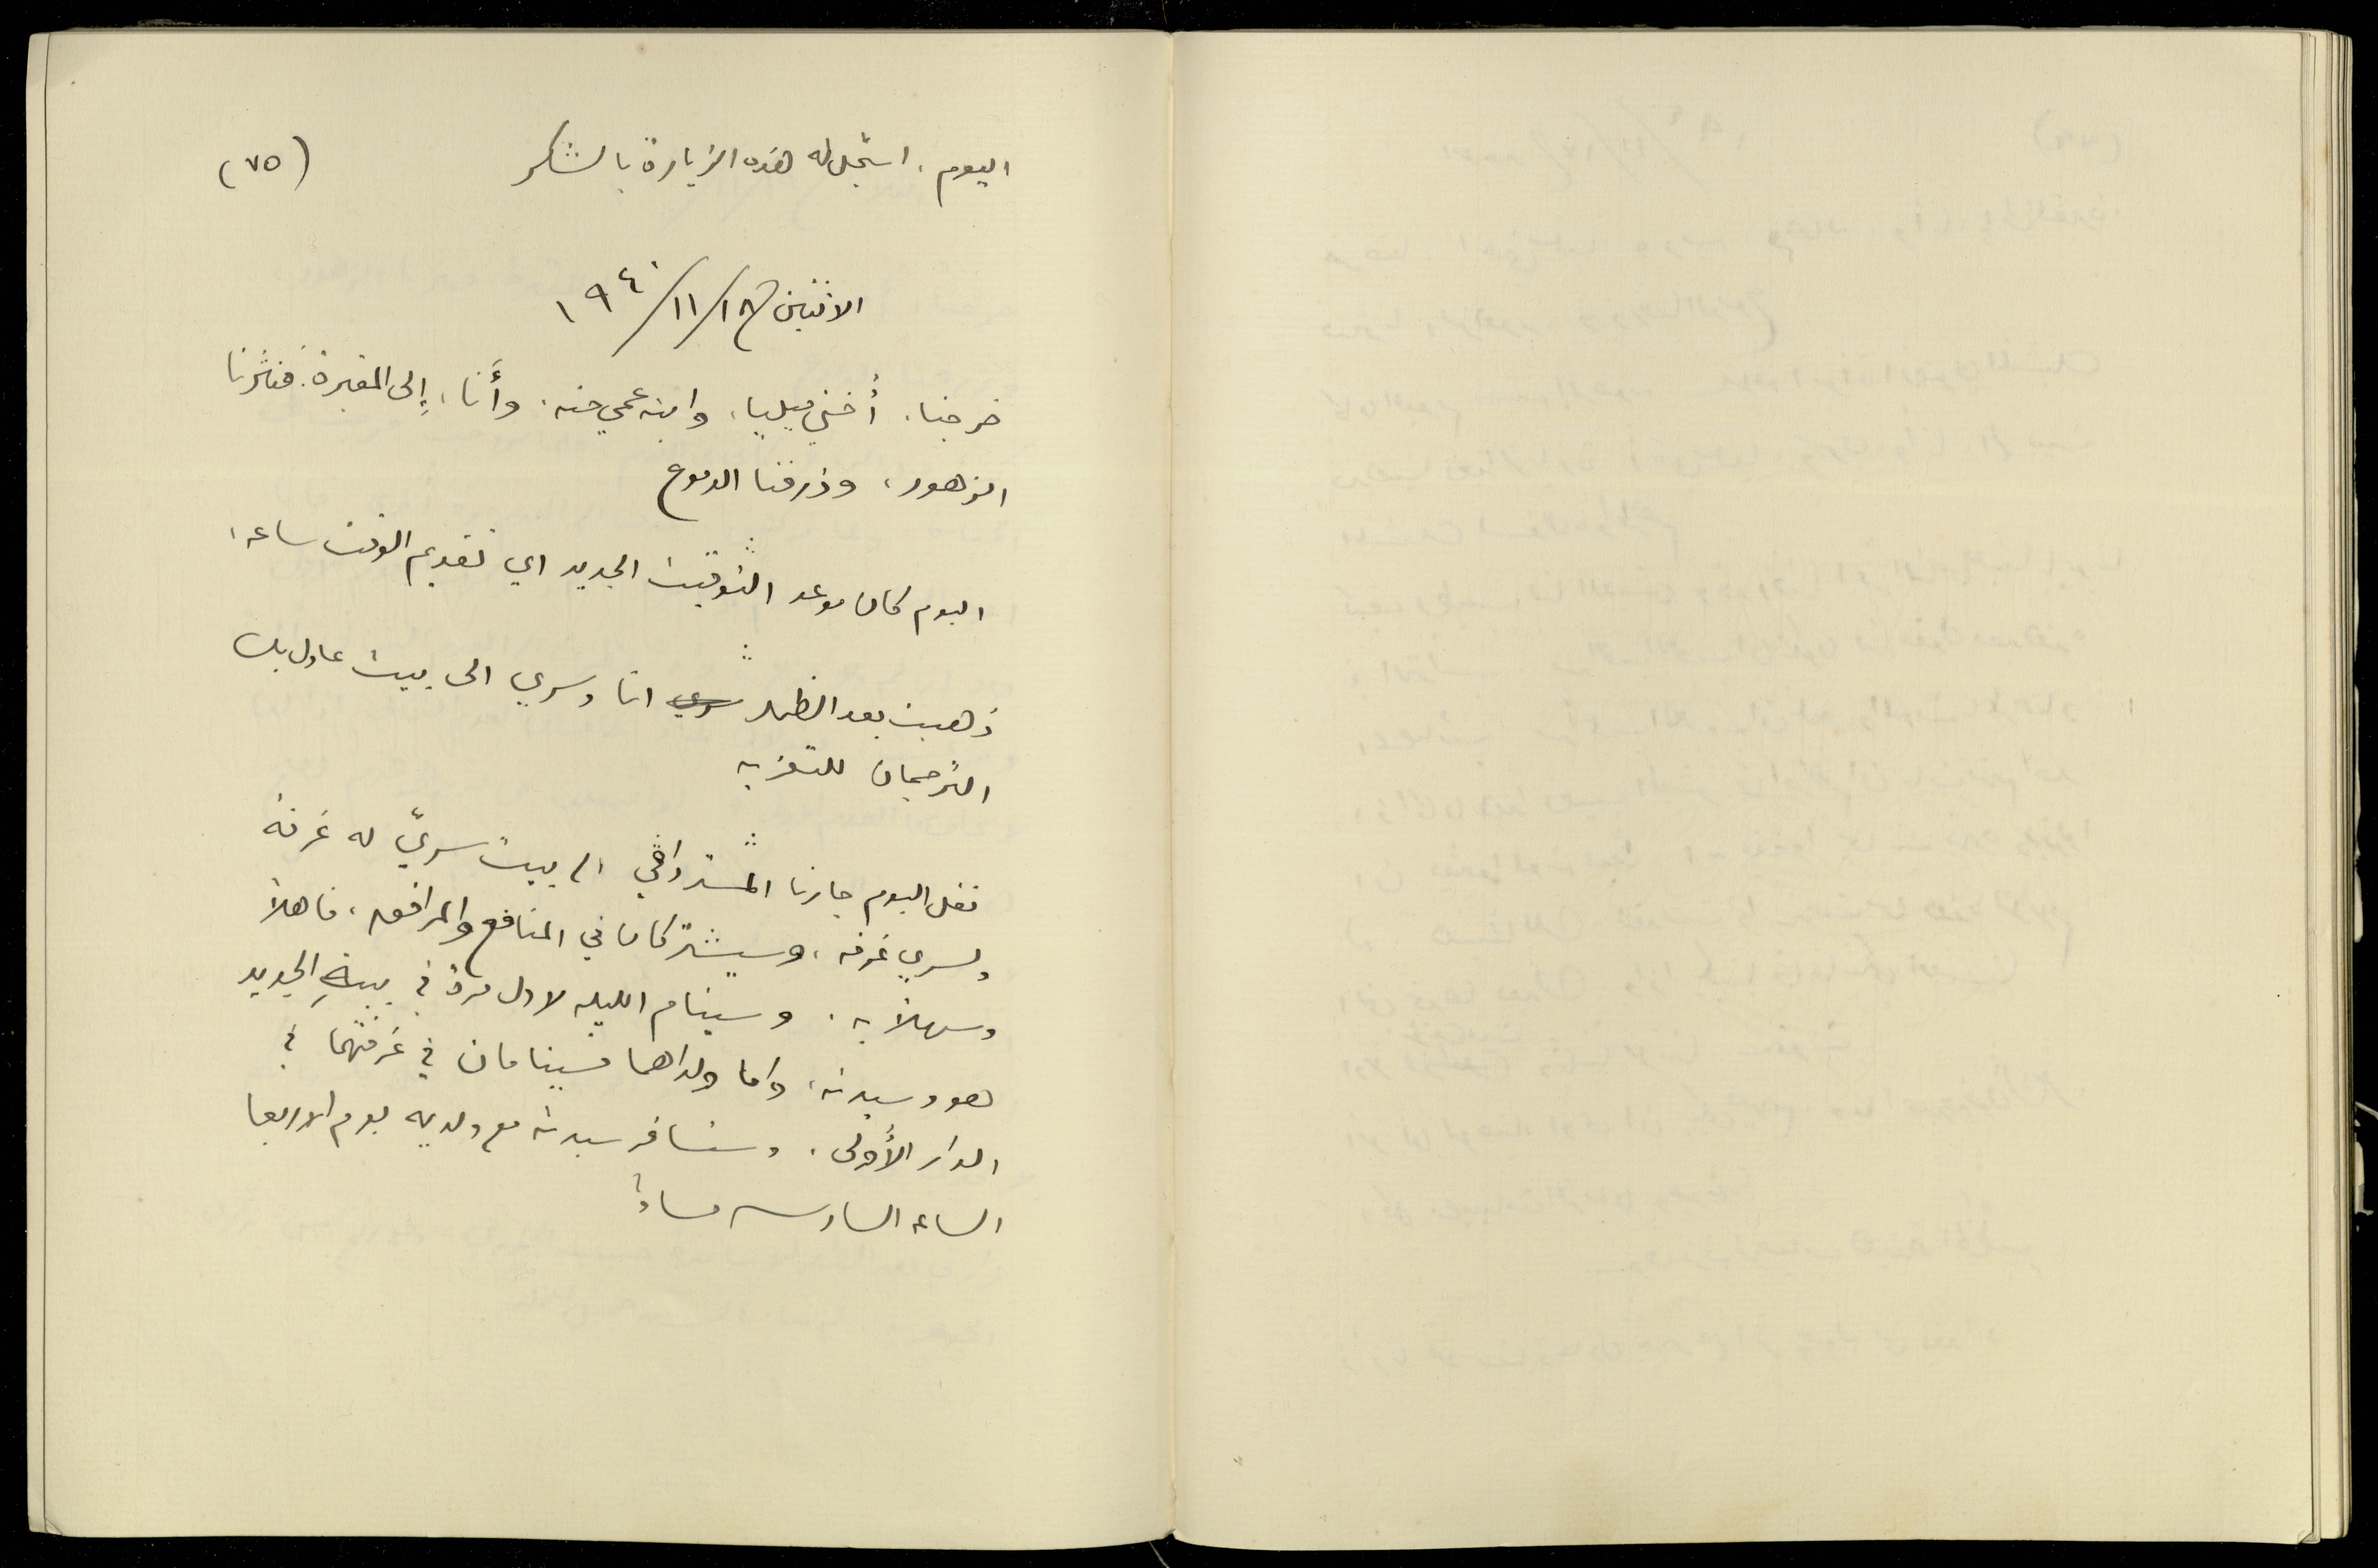 (٧٥)
اليوم، اسجل له هذه الزيارة بالشكر
الاثنين ١٨/١١/١٩٤٠
خرجنا، أختي ميليا، وابنه عمي حنه، وأنا، إلى المقبرة. فنثرنا
الزهور، وذرفنا الدموع
اليوم كان موعد التوقيت الجديد اي تقديم الوقت ساعه،
ذهبت بعد الظهر انا وسري الى بيت عادل بك
الترجمان للتعزيه
نقل اليوم جارنا الى بيت سريّ له غرفة
ولسري غرفه، وسيشتركان في المنافع والمرافق، فاهلاً
وسهلاً به. وسينام الليله لاول مرة في بيته الجديد
هو وسيدته، واما ولداهما فسينامان في غرفتهما في
الدار الأولى. وستسافر سيدته مع ولديه يوم الاربعا
الساعه السادسه مساءً